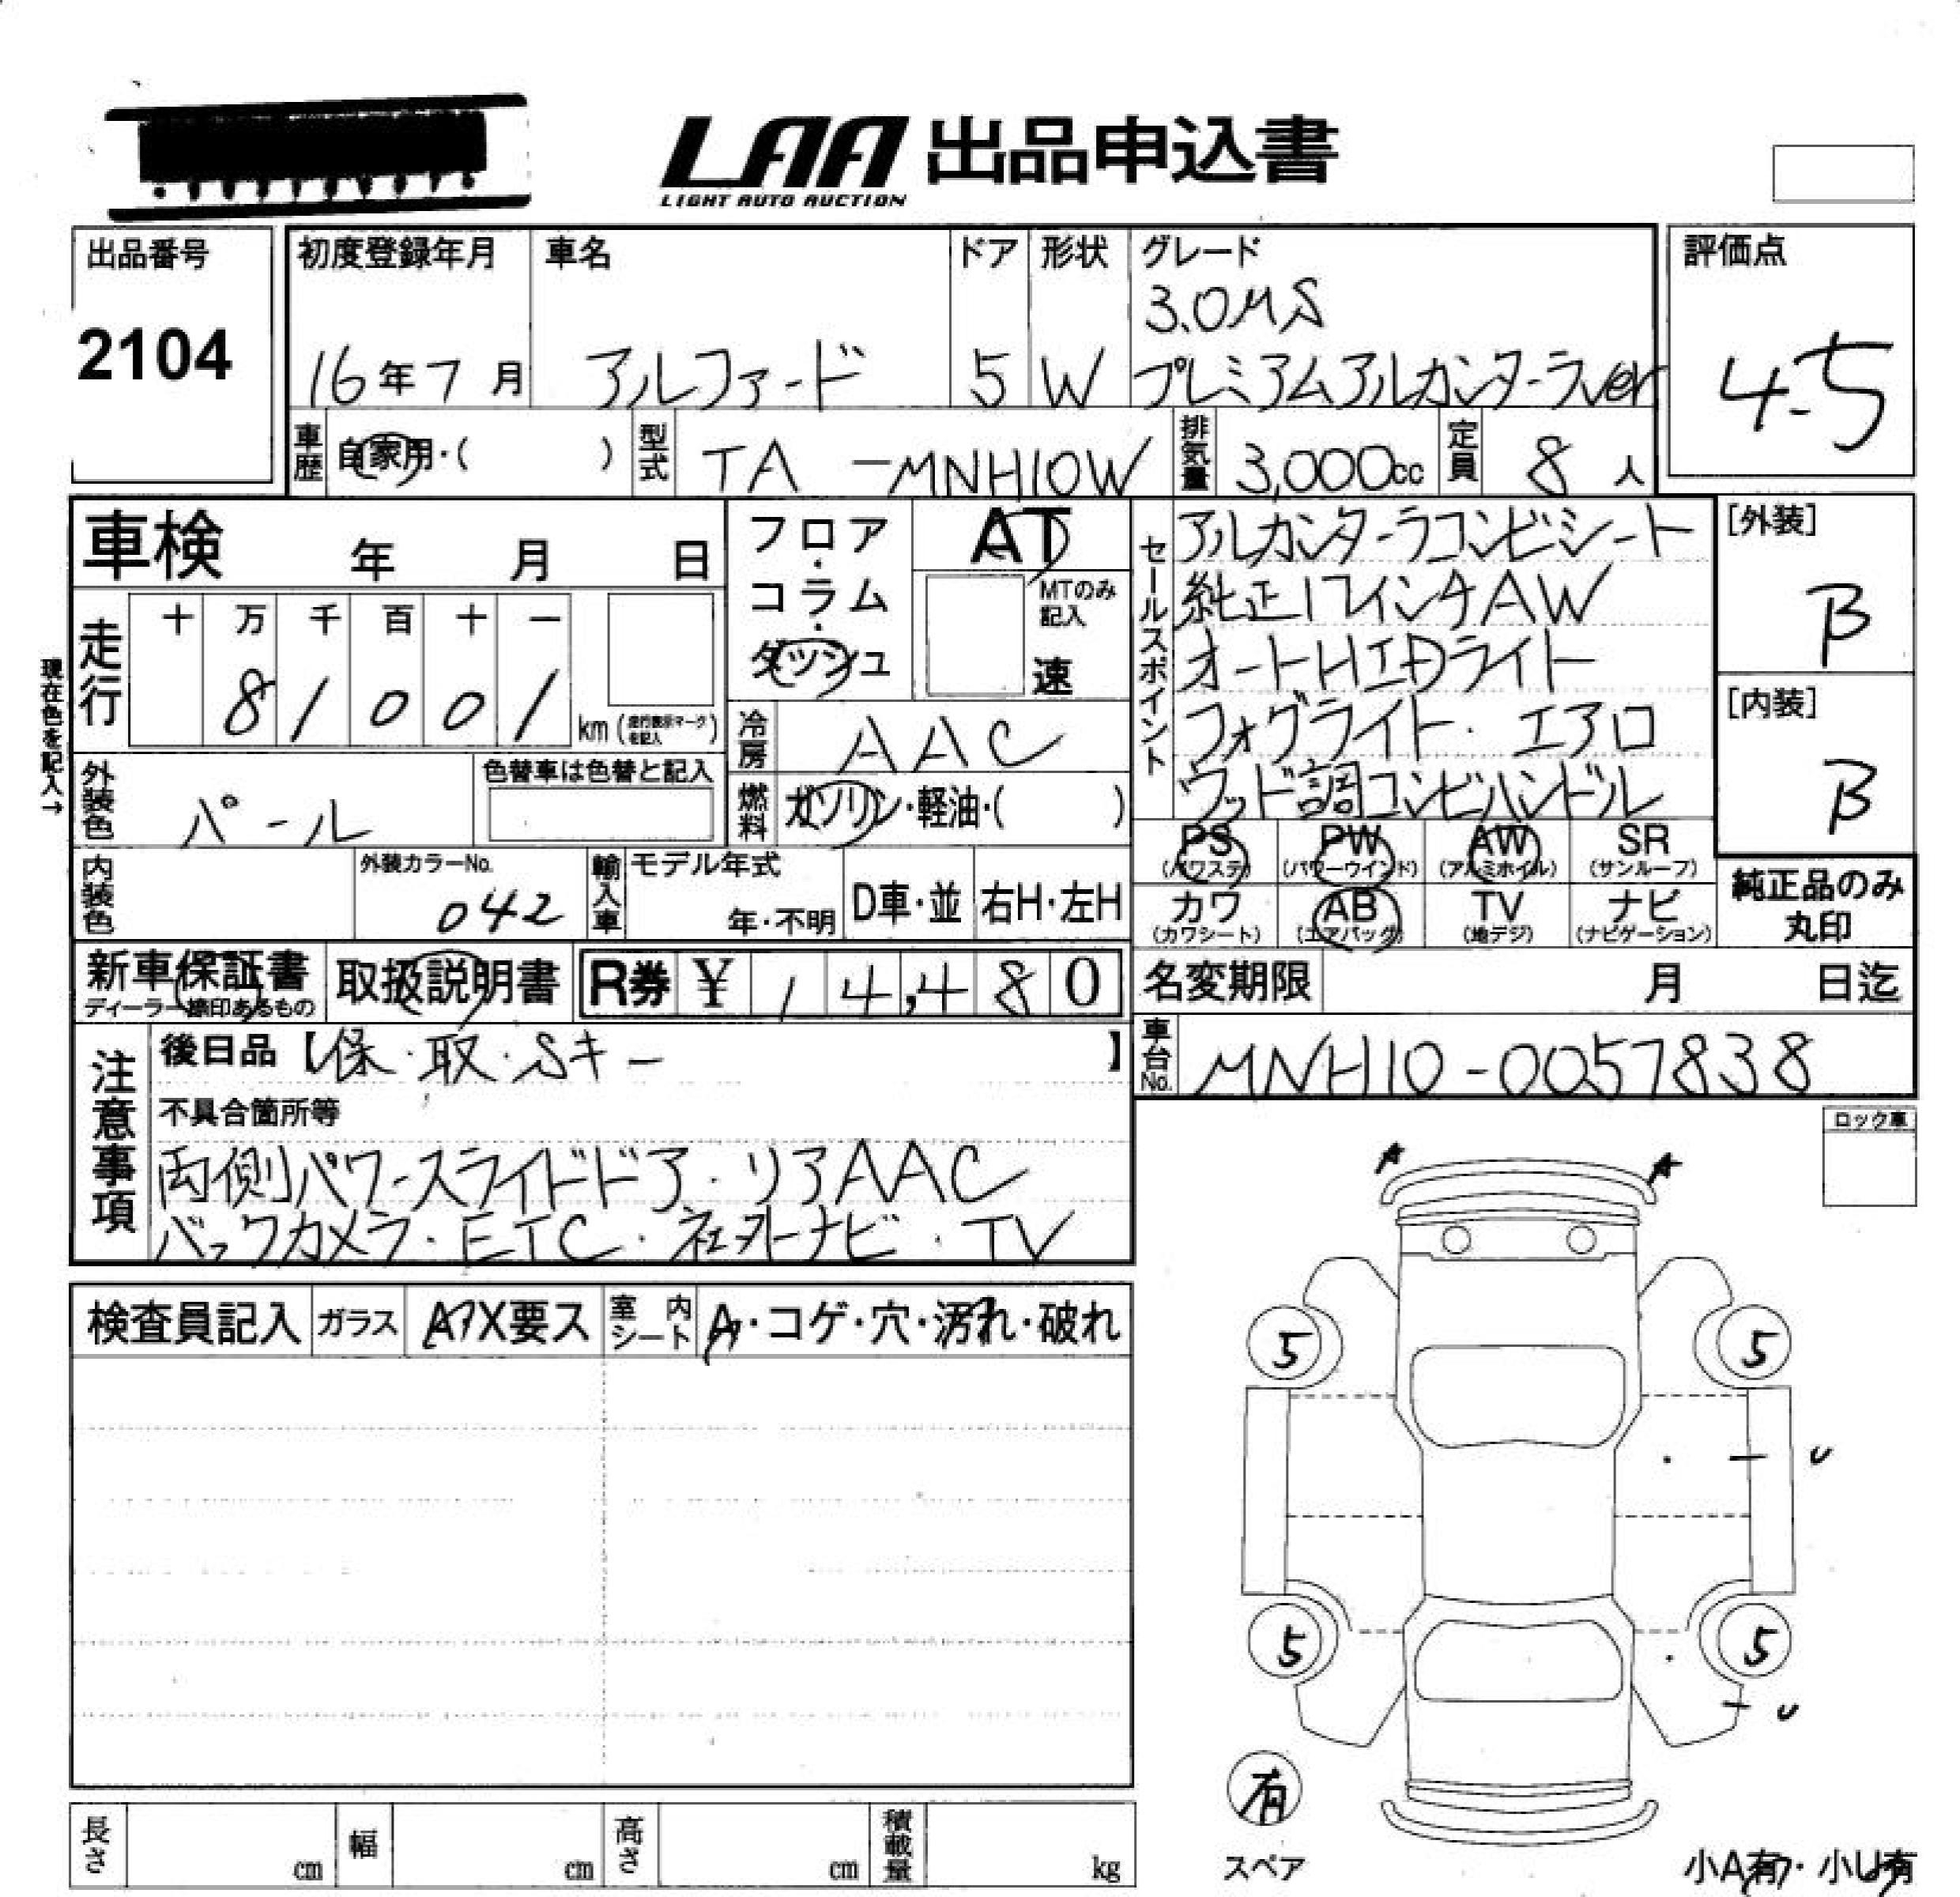 LAA 出品申込書
LIGHT AUTO AUCTION
出品番号
2104
初度登録年月
16年7月
車名
アルファード
ドア
5
形状
W
グレード
3.0MS
プレミアムアルカンターラver
評価点
4.5
車歴
自家用・( )
型式
TA -MNH10W
排気量
3,000cc
定員
8人
車検 年 月 日
フロア・
コラム・
ダッシュ
AT
MTのみ
記入
速
セールスポイント
アルカンターラコンビシート
純正17インチAW
オートHIDライト
フォグライト・エアロ
ウッド調コンビハンドル
[外装]
B
[内装]
B
走行
十 万 千 百 十 一
8 1 0 0 1
km(走行表示マークを記入)
現在色を記入→
冷房
AAC
外装色
パール
色替車は色替と記入
燃料
ガソリン・軽油・( )
PS
(パワステ)
PW
(パワーウインド)
AW
(アルミホイル)
SR
(サンルーフ)
内装色
外装カラーNo.
042
輸入車
モデル年式
年・不明
D車・並
右H・左H
カワ
(カワシート)
AB
(エアバッグ)
TV
(地デジ)
ナビ
(ナビゲーション)
純正品のみ
丸印
新車保証書
ディーラー捺印あるもの
取扱説明書
R券 ¥ 14,480
名変期限 月 日迄
注意事項
後日品【保・取・Sキー】
車台No.
MNH10-0057838
不具合箇所等
両側パワースライドドア・リアAAC
バックカメラ・ETC・社外ナビ・TV
ロック車
A A
検査員記入
ガラス
A・X要ス
室内シート
A・コゲ・穴・汚れ・破れ
5 5
U
5 5
U
有
スペア
小A有・小U有
長さ cm
幅 cm
高さ cm
積載量 kg